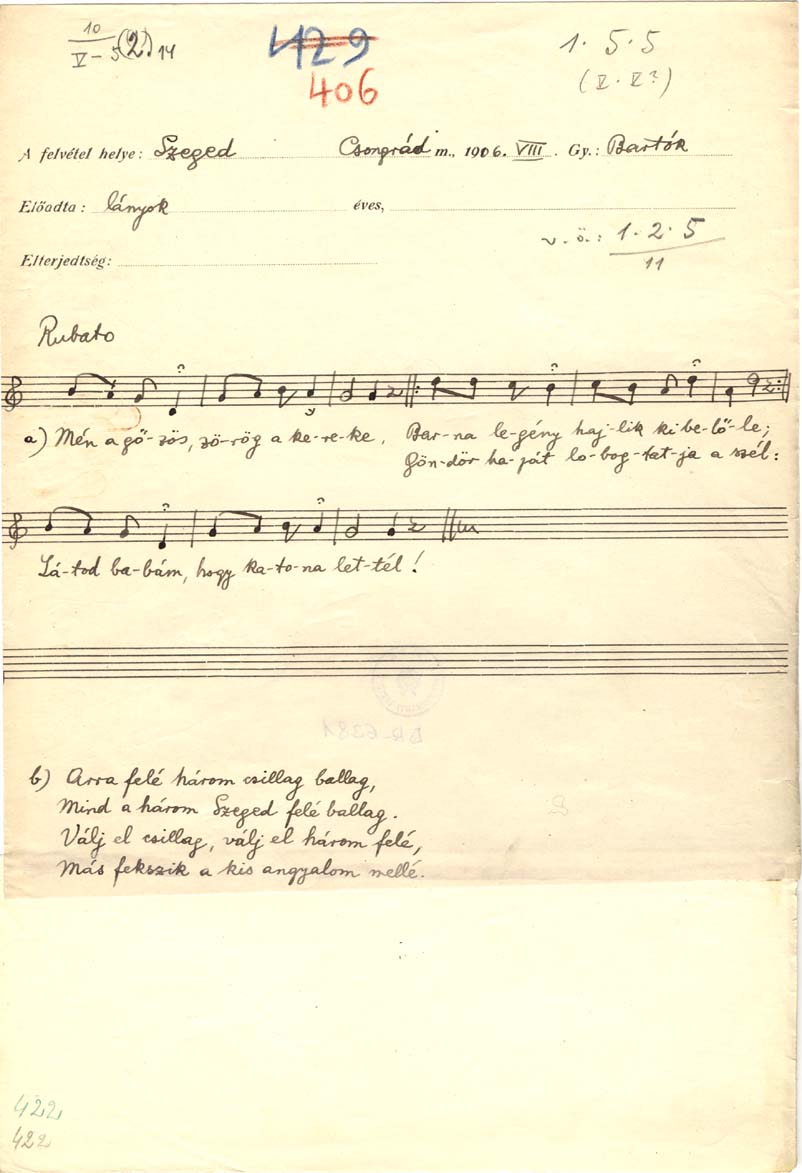 10
V – 5 (2.) 14
429
406
1. 5. 5
(V. V?)
A felvétel helye: Szeged Csongrád m., 1906. VIII. Gy.: Bartók
Előadta: lányok éves,
v. ö.: 1. 2. 5
11
Elterjedtség:
Rubato
a) Mén a gő-zös, zö-rög a ke-re-ke. Bar-na le-gény haj-lik ki be-lő-le;
Gön-dör ha-ját lo-bog-tat-ja a szél:
Lá-tod ba-bám, hogy ka-to-na let-tél!
BR-6381
b) Arra felé három csillag ballag,
Mind a három Szeged felé ballag.
Válj el csillag, válj el három felé,
Más fekszik a kis angyalom mellé.
422
422